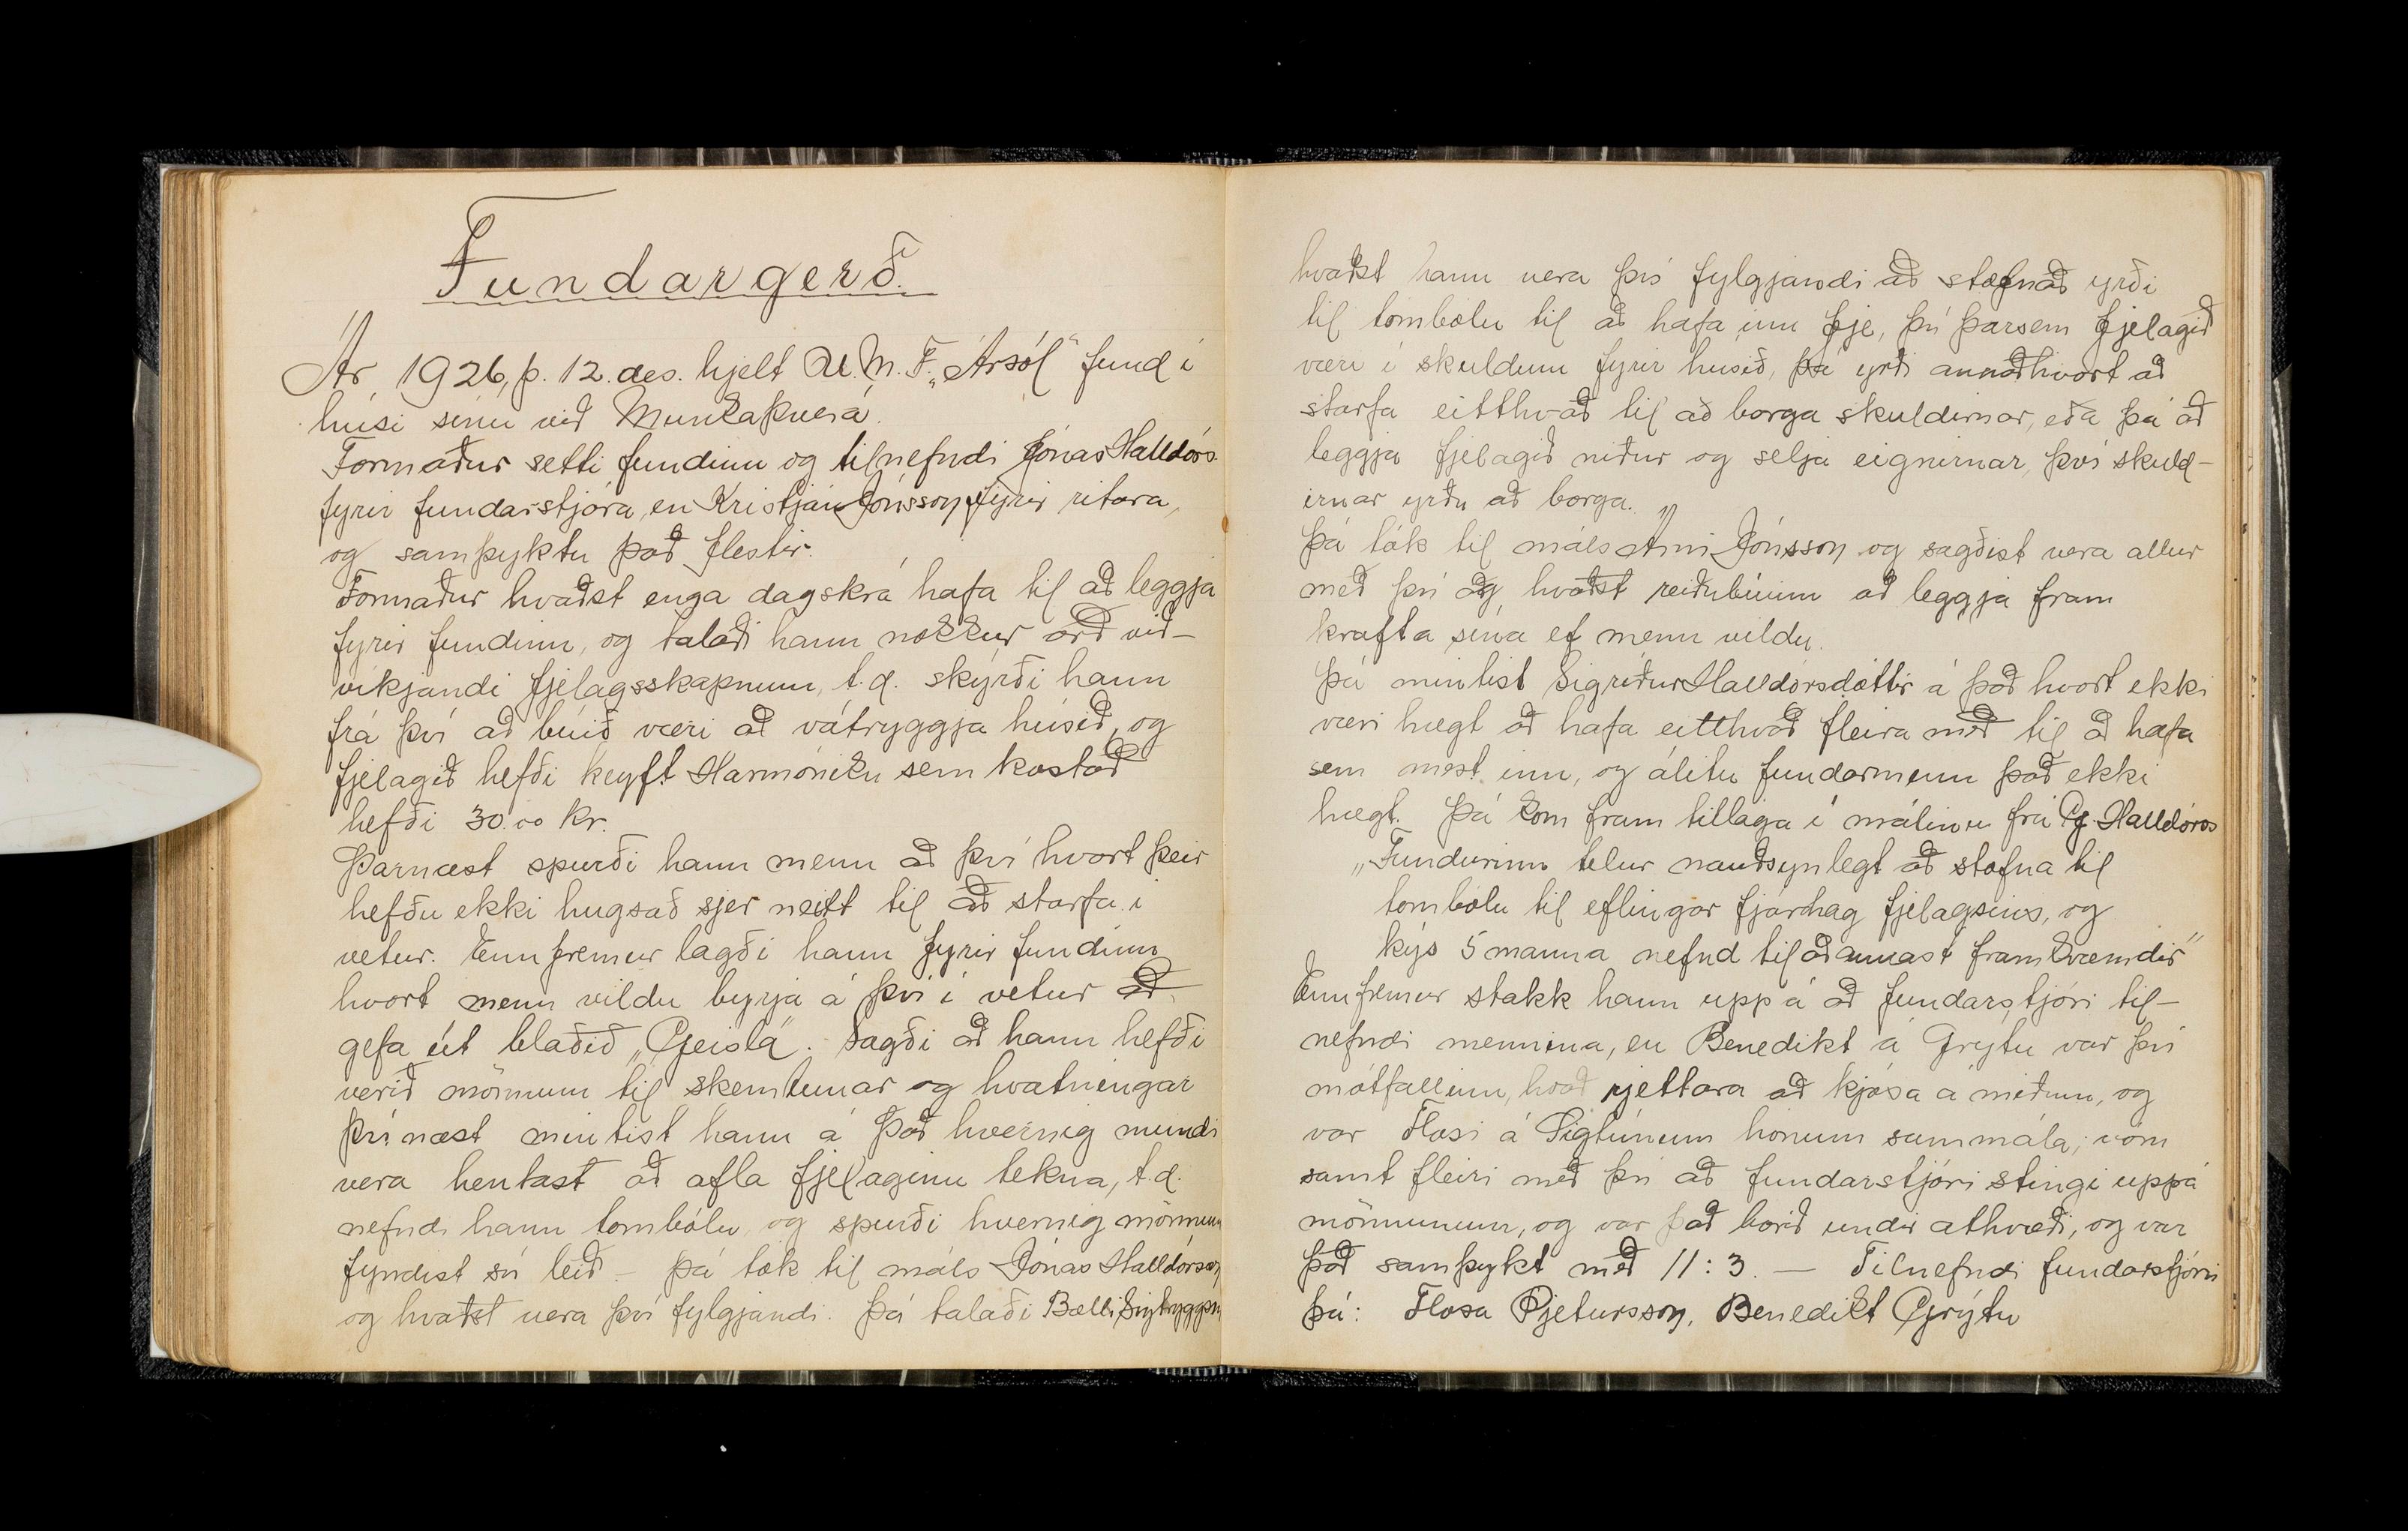 Fundargerð.
Ár 1926, þ. 12. des. hjelt U.M.F. „Ársól" fund í
húsi sínu við Munkaþverá.
Formaður setti fundinn og tilnefndi Jónas Halldórs.
fyrir fundarstjóra, en Kristján Jónsson fyrir ritara,
og samþyktu það flestir.
Formaður kvaðst enga dagskrá hafa til að leggja
fyrir fundinn, og talaði hann nokkur orð við-
víkjandi fjelagsskapnum, t.d. skýrði hann
frá því að búið væri að vátryggja húsið, og
fjelagið hefði keyft Harmóniku sem kostað
hefði 30.00 kr.
Þarnæst spurði hann menn að því hvort þeir
hefðu ekki hugsað sjer neitt til að starfa í
vetur. Ennfremur lagði hann fyrir fundinn
hvort menn vildu byrja á því í vetur að
gefa út blaðið „Geisla". Sagði að hann hefði
verið mönnum til skemtunar og hvatningar
Þvínæst mintist hann á það hvernig mundi
vera hentast að afla fjelaginu tekna, t.d.
nefndi hann tombólu og spurði hvernig mönnum
fyndist sú leið – þá tók til máls Jónas Halldórsson
og hvaðst vera því fylgjandi. Þá talaði Bolli Sigtryggsson
hvaðst hann vera því fylgjandi að stofnað yrði
til tombólu til að hafa inn fje, því þarsem fjelagið
væri í skuldum fyrir húsið, þá yrði annaðhvort að
starfa eitthvað til að borga skuldirnar, eða þá að
leggja fjelagið niður og selja eignirnar, því skuld-
irnar yrðu að borga.
Þá tók til máls Árni Jónsson og sagðist vera allur
með því og hvaðst reiðubúinn að leggja fram
krafta sína ef menn vildu.
Þá mintist Sigríður Halldórsdóttir á það hvort ekki
væri hægt að hafa eitthvað fleira með til að hafa
sem mest inn, og álitu fundarmenn það ekki
hægt. Þá kom fram tillaga í málinu frá G. Halldórss
„Fundurinn telur nauðsynlegt að stofna til
tombólu til eflingar fjárhag fjelagsins, og
kýs 5 manna nefnd til að annast framkvæmdir"
Ennfremur stakk hann uppá að fundarstjóri til-
nefndi mennina, en Benedikt á Grýtu var því
mótfallinn, kvað rjettara að kjósa á miðum, og
var Flosi á Sigtúnum honum sammála, vóru
samt fleiri með því að fundarstjóri stingi uppá
mönnunum, og var það borið undir atkvæði, og var
það samþykt með 11:3. — Tilnefndi fundarstjóri
þá: Flosa Pjetursson, Benedikt Grýtu